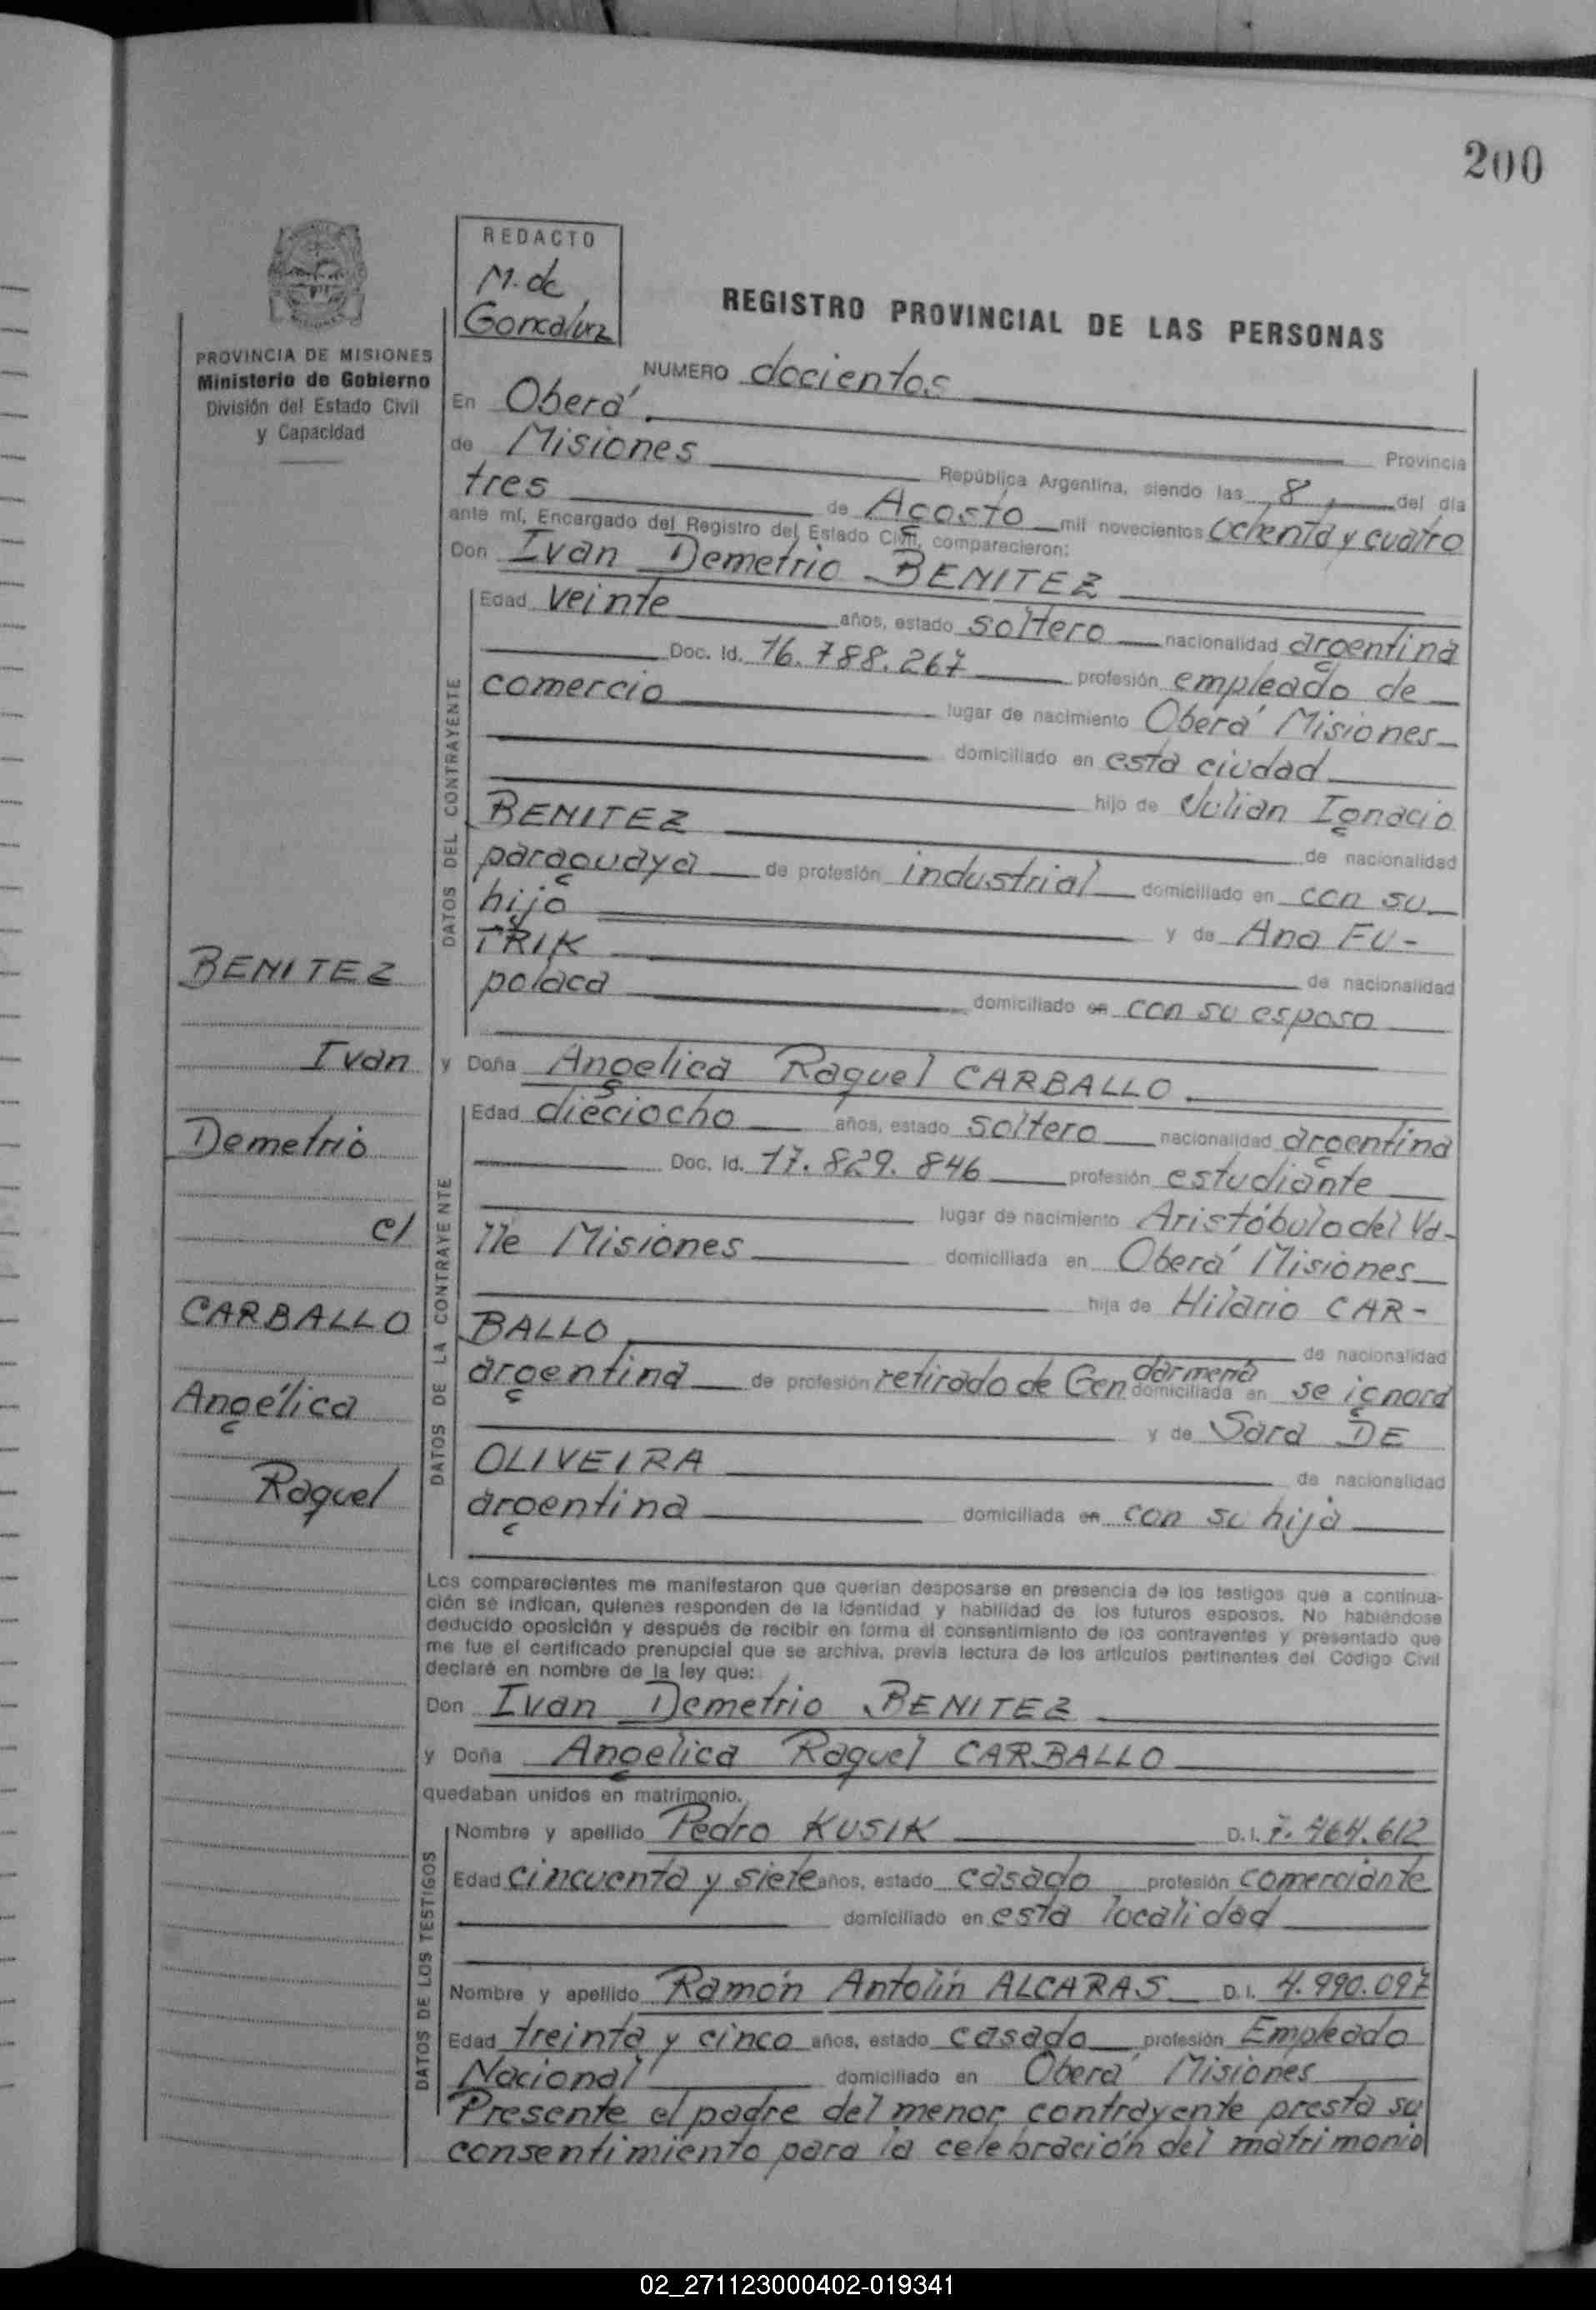 200
REDACTO
M. de
Goncalvez
REGISTRO PROVINCIAL DE LAS PERSONAS
PROVINCIA DE MISIONES
Ministerio de Gobierno
División del Estado Civil
y Capacidad
NUMERO docientos
En Oberá, Provincia
de Misiones República Argentina, siendo las 8, del día
tres de Agosto mil novecientos ochenta y cuatro
ante mí, Encargado del Registro del Estado Civil, comparecieron:
Don Ivan Demetrio BENITEZ
DATOS DEL CONTRAYENTE
Edad veinte años, estado soltero nacionalidad argentina
Doc. Id. 16.788.267 profesión empleado de
comercio lugar de nacimiento Oberá Misiones
domiciliado en esta ciudad
hijo de Julian Ignacio
BENITEZ de nacionalidad
paraguaya de profesión industrial domiciliado en con su
hijo y de Ana FU-
TRIK de nacionalidad
polaca domiciliado en con su esposo
y Doña Angelica Raquel CARBALLO
DATOS DE LA CONTRAYENTE
Edad dieciocho años, estado soltero nacionalidad argentina
Doc. Id. 17.829.846 profesión estudiante
lugar de nacimiento Aristóbulo del Va-
lle Misiones domiciliada en Oberá Misiones
hija de Hilario CAR-
BALLO de nacionalidad
argentina de profesión retirado de Gendarmería domiciliada en se ignora
y de Sara DE
OLIVEIRA de nacionalidad
argentina domiciliada en con su hija
BENITEZ
Ivan
Demetrio
c/
CARBALLO
Angélica
Raquel
Los comparecientes me manifestaron que querían desposarse en presencia de los testigos que a continua-
ción se indican, quienes responden de la identidad y habilidad de los futuros esposos. No habiéndose
deducido oposición y después de recibir en forma el consentimiento de los contrayentes y presentado que
me fue el certificado prenupcial que se archiva, previa lectura de los artículos pertinentes del Código Civil
declaré en nombre de la ley que:
Don Ivan Demetrio BENITEZ
y Doña Angelica Raquel CARBALLO
quedaban unidos en matrimonio.
DATOS DE LOS TESTIGOS
Nombre y apellido Pedro KUSIK D.I. 7.464.612
Edad cincuenta y siete años, estado casado profesión comerciante
domiciliado en esta localidad
Nombre y apellido Ramón Antolín ALCARAS D.I. 4.990.097
Edad treinta y cinco años, estado casado profesión Empleado
Nacional domiciliado en Oberá Misiones
Presente el padre del menor contrayente presta su
consentimiento para la celebración del matrimonio
02_271123000402-019341